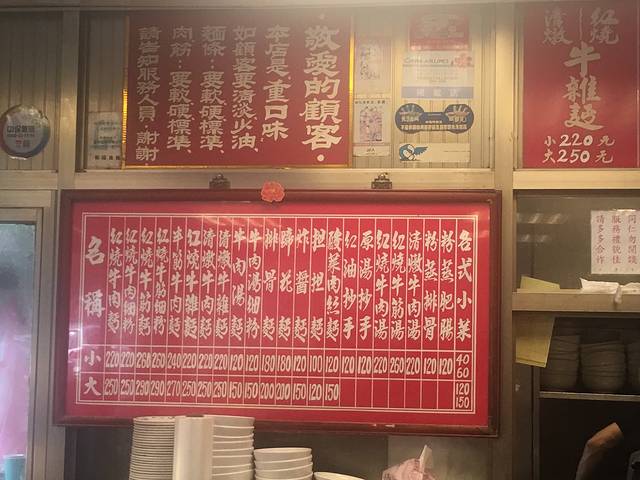 敬愛的顧客·
本店是重口味
如顧客要清淡少油、
麵條:要軟硬標準、
肉筋:要軟硬標準、
請告知服務人員,謝謝
紅燒
清燉
牛雜麵
小220元
大250元
CHINA AIRLINES
名稱 小 大
紅燒牛肉麵 220 250
紅燒牛肉細粉 220 250
紅燒牛筋麵 260 290
紅燒牛筋細粉 260 290
半筋半肉麵 240 270
紅燒牛雜麵 220 250
清燉牛肉麵 220 250
清燉牛雜麵 220 250
牛肉湯麵 120 150
牛肉湯細粉 120 150
排骨麵 180 200
蹄花麵 180 200
炸醬麵 120 150
担担麵 100 120
酸菜肉絲麵 120 150
紅油抄手 120
原湯抄手 120
紅燒牛肉湯 220
紅燒牛筋湯 260
清燉牛肉湯 220
粉蒸排骨 120
粉蒸肥腸 120
各式小菜 40 60 120 150
同仁勿閒談
服務禮貌佳
請多多合作